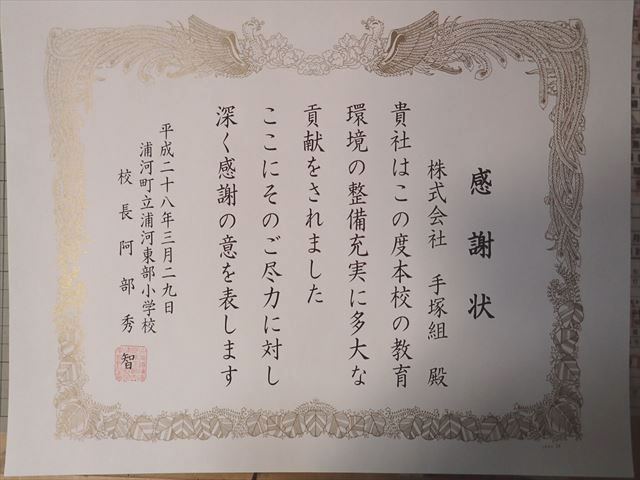 感謝状
株式会社 手塚組 殿
貴社はこの度本校の教育
環境の整備充実に多大な
貢献をされました
ここにそのご尽力に対し
深く感謝の意を表します
平成二十八年三月二九日
浦河町立浦河東部小学校
校長 阿部 秀智